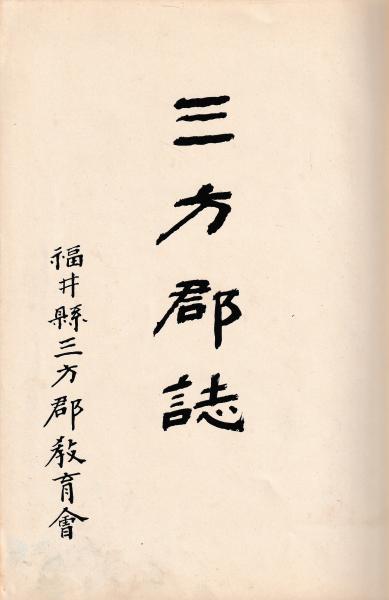 三方郡誌
福井縣三方郡教育會